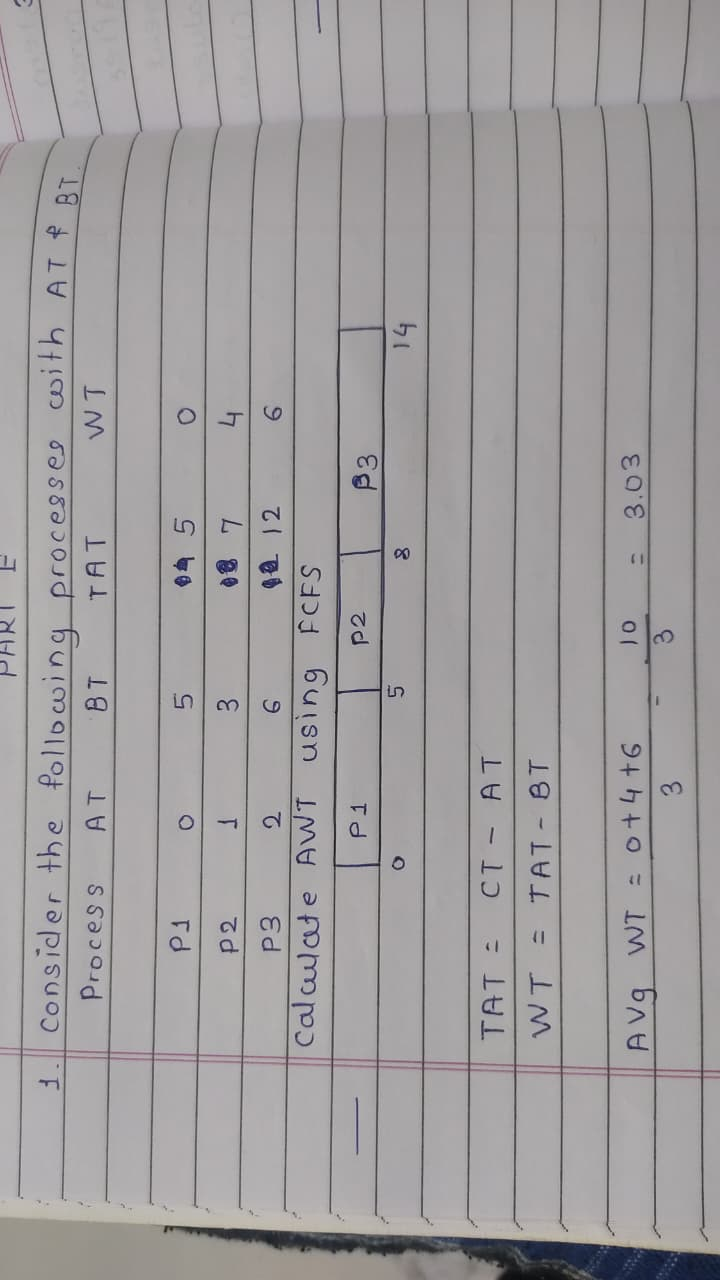 PART E
1. Consider the following processes with AT & BT.
Process AT BT TAT WT
P1 0 5 5 0
P2 1 3 7 4
P3 2 6 12 6
Calculate AWT using FCFS
P1 P2 P3
0 5 8 14
TAT = CT - AT
WT = TAT - BT
Avg WT = 0+4+6 - 10 = 3.03
3 3